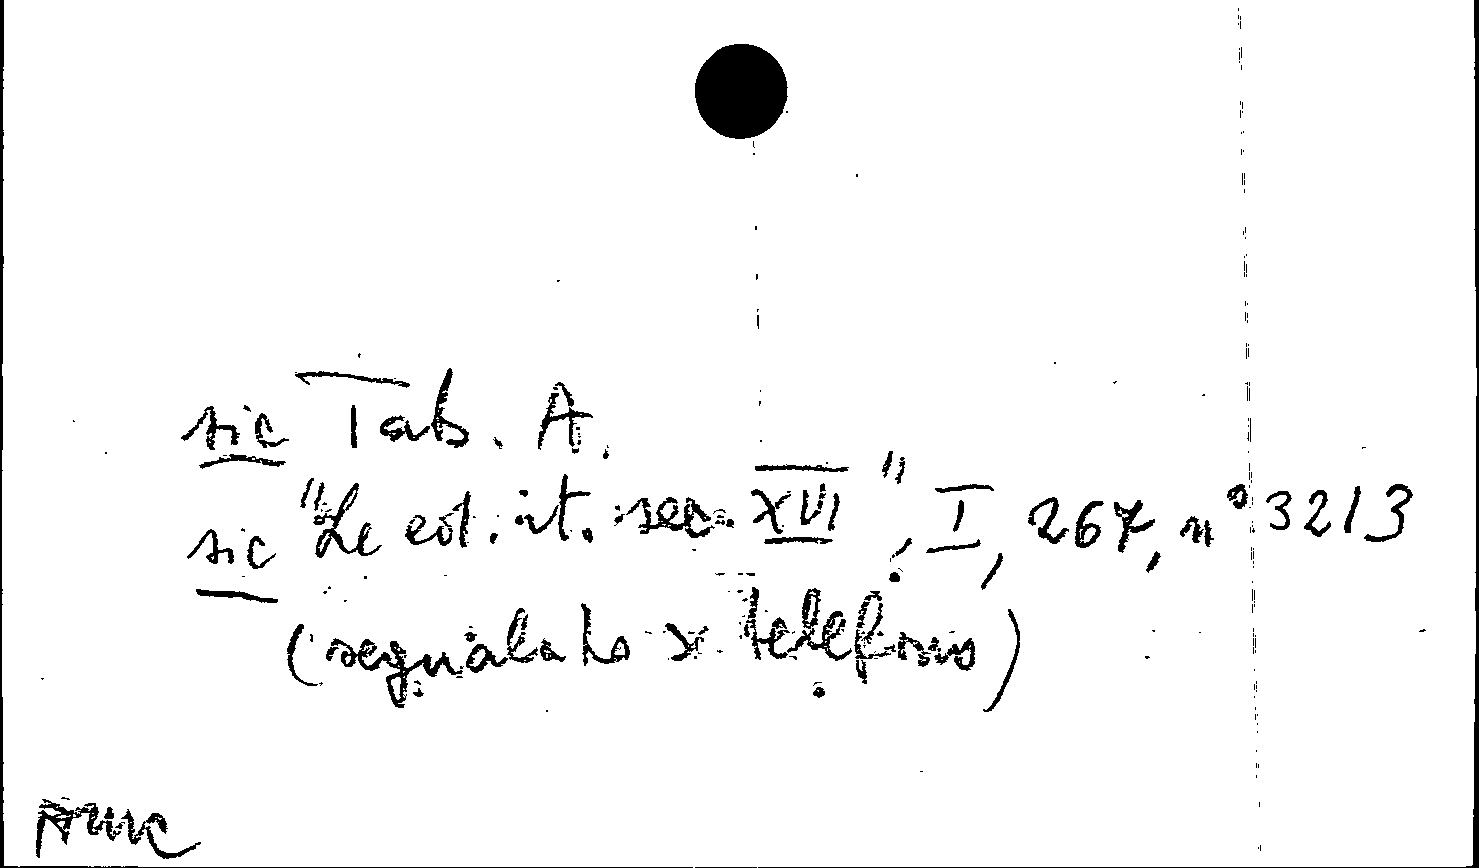 sic Tab. A.
sic "Le ed. it. sec. XVI", I, 267, n° 3213
(segnalato x telefono)